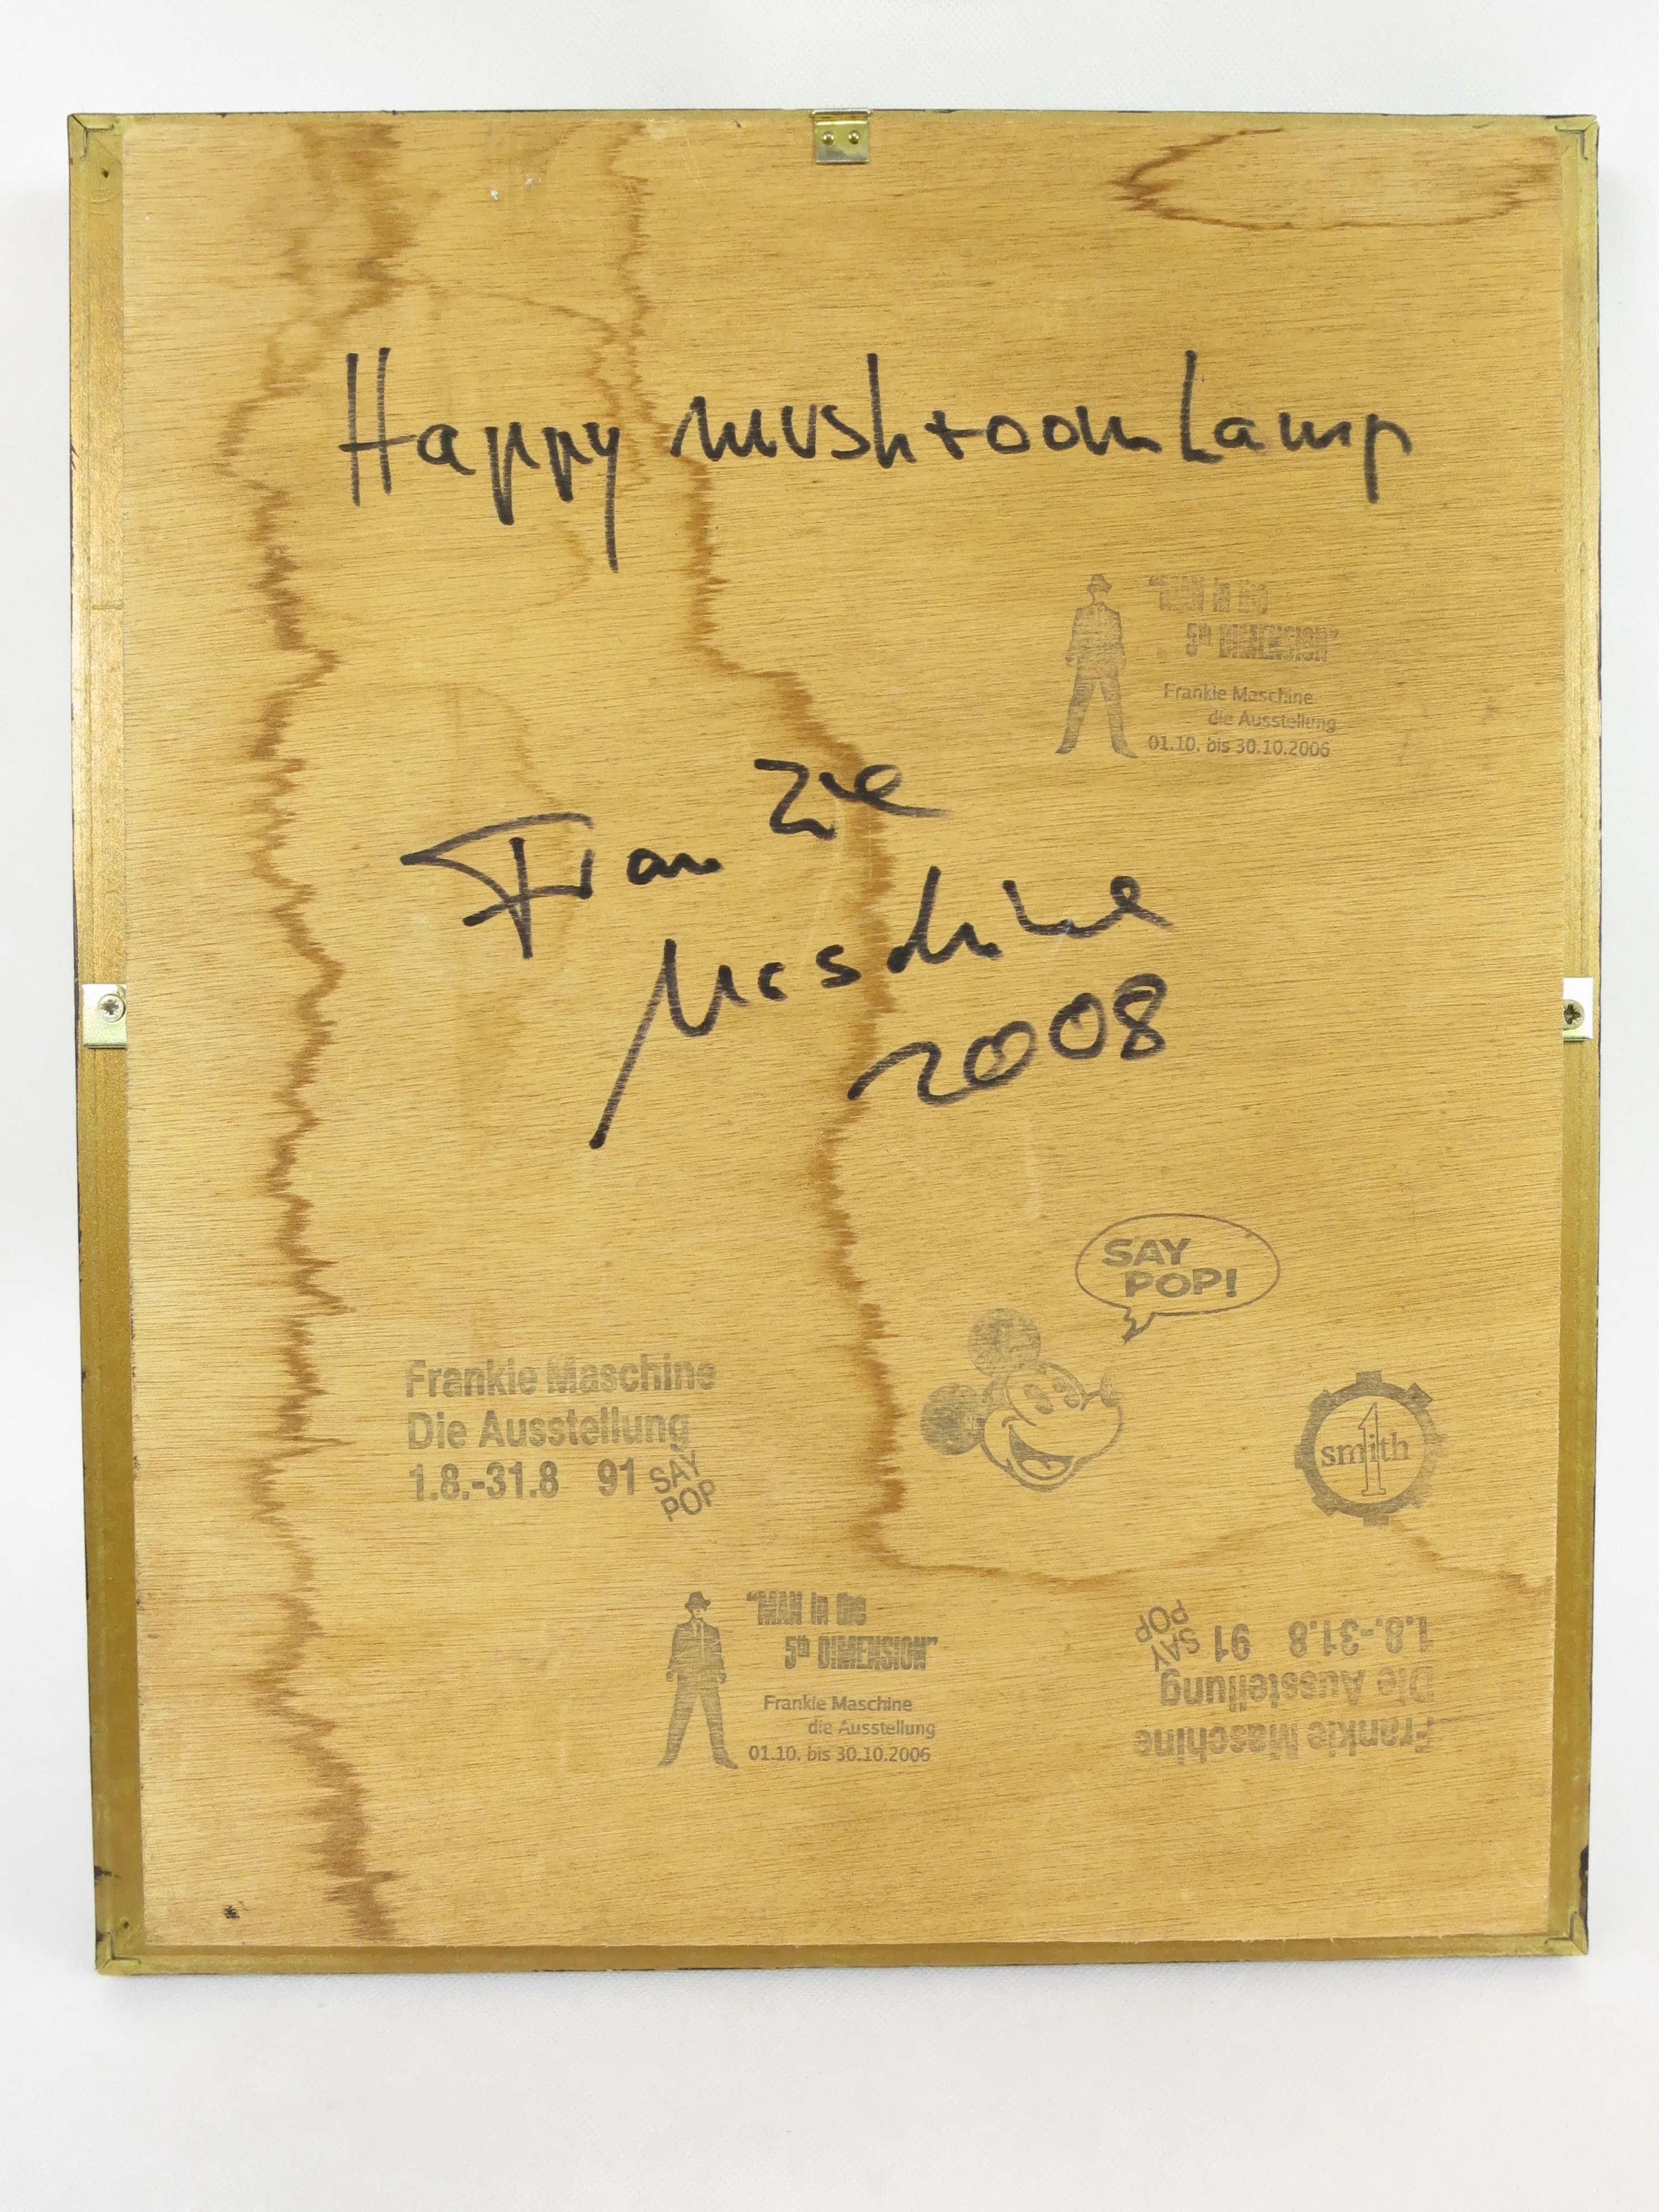 Happy mushroom Lamp
"MAN in the
5th DIMENSION"
Frankie Maschine
die Ausstellung
01.10. bis 30.10.2006
Frankie
Maschine
2008
SAY
POP!
Frankie Maschine
Die Ausstellung
1.8.-31.8 91 SAY
POP
1
smith
"MAN in the
5th DIMENSION"
Frankie Maschine
die Ausstellung
01.10. bis 30.10.2006
Frankie Maschine
Die Ausstellung
1.8.-31.8 91 SAY
POP